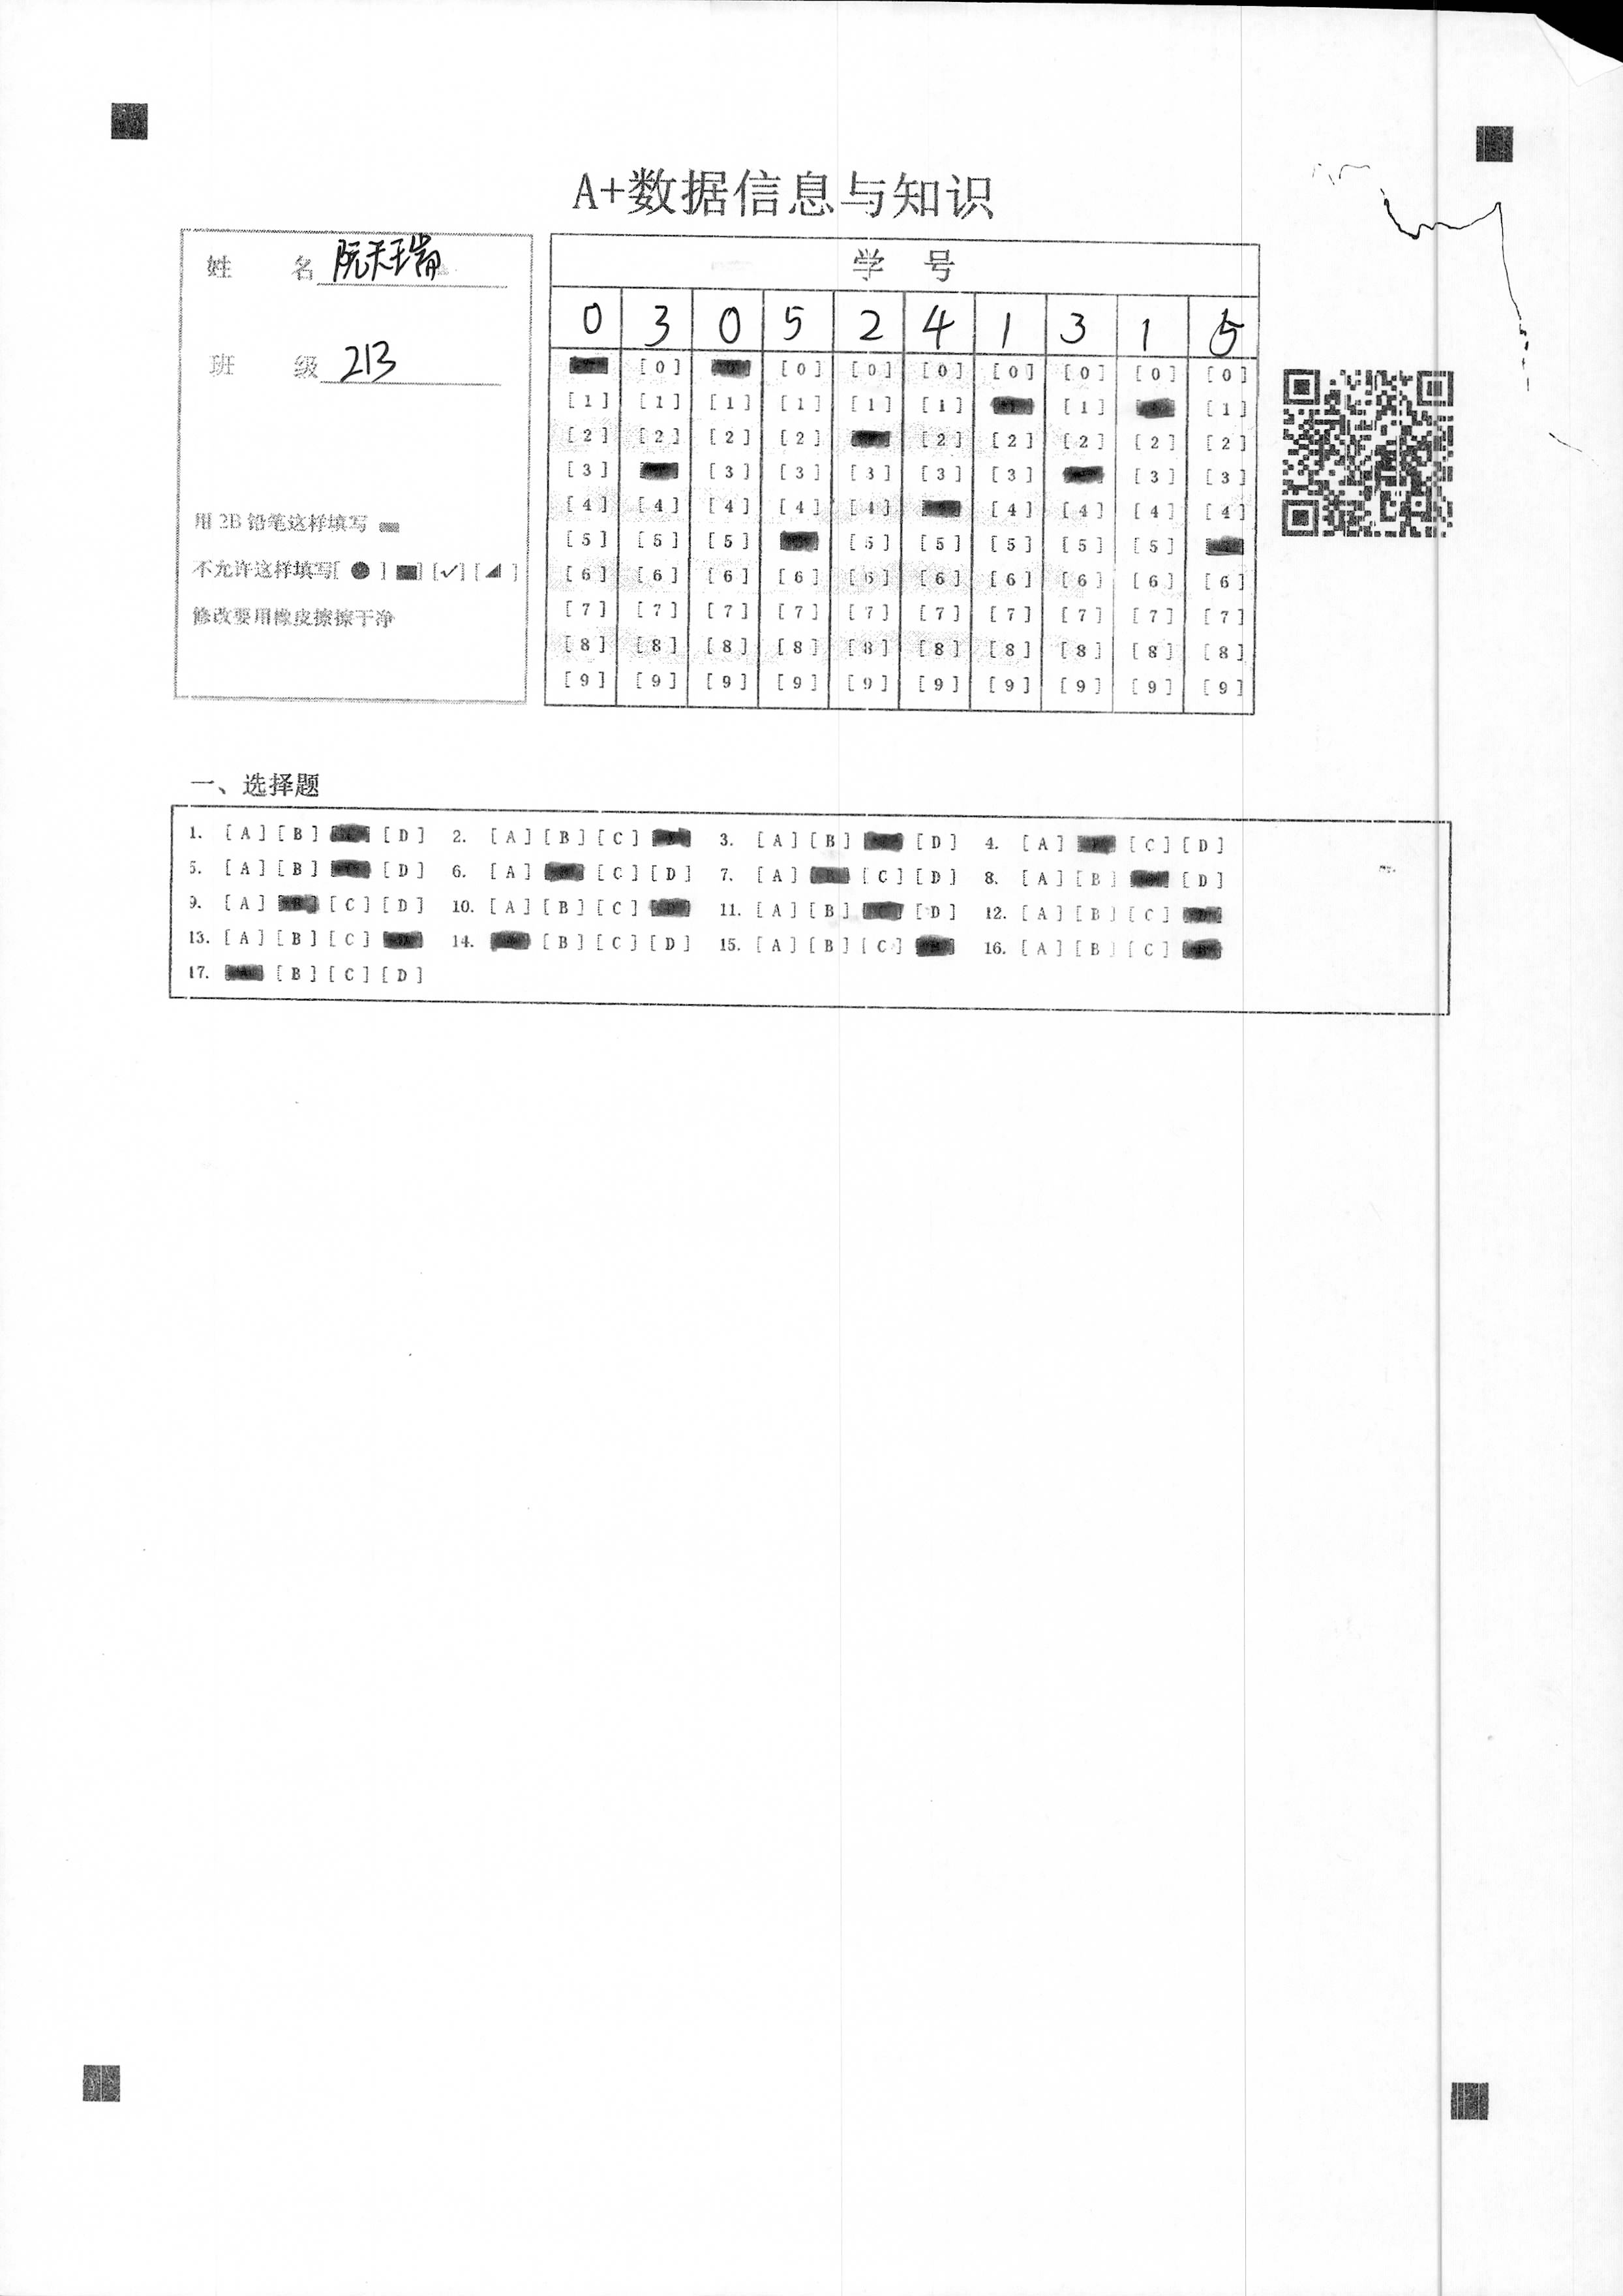 A+数据信息与知识
姓 名 阮天瑞
班 级 213
用 2B 铅笔这样填写
不允许这样填写[ ● ] [■] [✓] [◢ ]
修改要用橡皮擦擦干净
学 号
0 3 0 5 2 4 1 3 1 5
[0] [0] [0] [0] [0] [0] [0] [0]
[1] [1] [1] [1] [1] [1] [1] [1]
[2] [2] [2] [2] [2] [2] [2] [2] [2]
[3] [3] [3] [3] [3] [3] [3] [3]
[4] [4] [4] [4] [4] [4] [4] [4] [4]
[5] [5] [5] [5] [5] [5] [5] [5]
[6] [6] [6] [6] [6] [6] [6] [6] [6] [6]
[7] [7] [7] [7] [7] [7] [7] [7] [7] [7]
[8] [8] [8] [8] [8] [8] [8] [8] [8] [8]
[9] [9] [9] [9] [9] [9] [9] [9] [9] [9]
一、选择题
1. [A] [B] [D] 2. [A] [B] [C] 3. [A] [B] [D] 4. [A] [C] [D]
5. [A] [B] [D] 6. [A] [C] [D] 7. [A] [C] [D] 8. [A] [B] [D]
9. [A] [C] [D] 10. [A] [B] [C] 11. [A] [B] [D] 12. [A] [B] [C]
13. [A] [B] [C] 14. [B] [C] [D] 15. [A] [B] [C] 16. [A] [B] [C]
17. [B] [C] [D]